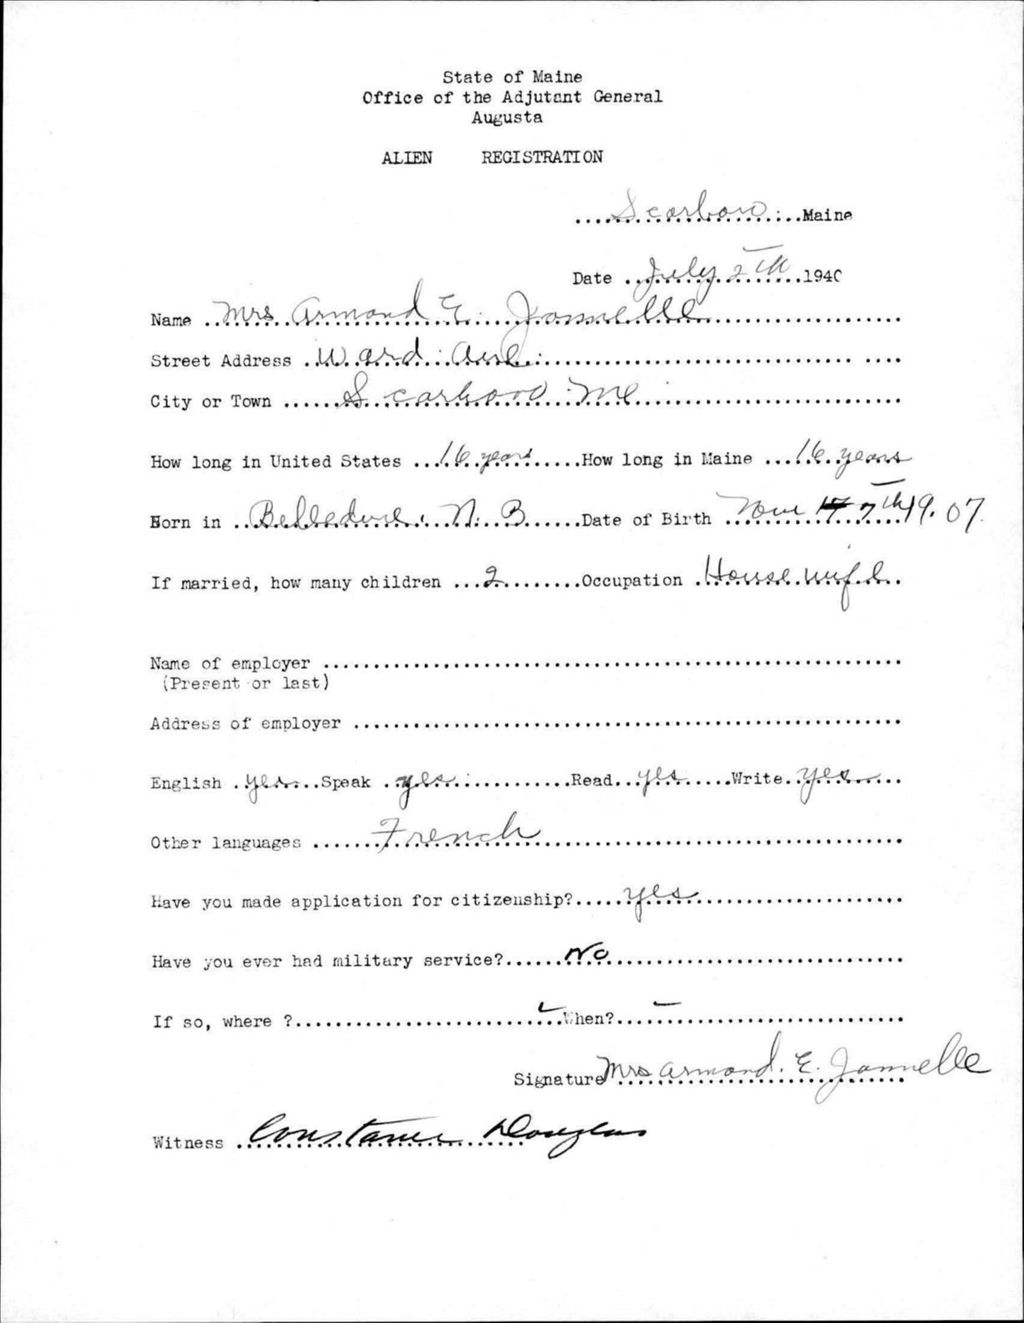 State of Maine
Office of the Adjutant General
Augusta
ALIEN REGISTRATION
Scarboro Maine
Date July 2th 1940
Name Mrs Armond E. Jannelle
Street Address Ward Ave
City or Town Scarboro Me
How long in United States 16 years How long in Maine 16 years
Born in Belledune N. B. Date of Birth Nov 7th 19.07.
If married, how many children 2 Occupation House wife
Name of employer
(Present or last)
Address of employer
English yes Speak yes Read yes Write yes
Other languages French
Have you made application for citizenship? yes
Have you ever had military service? No
If so, where ? When?
Signature Mrs Armond. E. Jannelle
Witness Constance Douglas